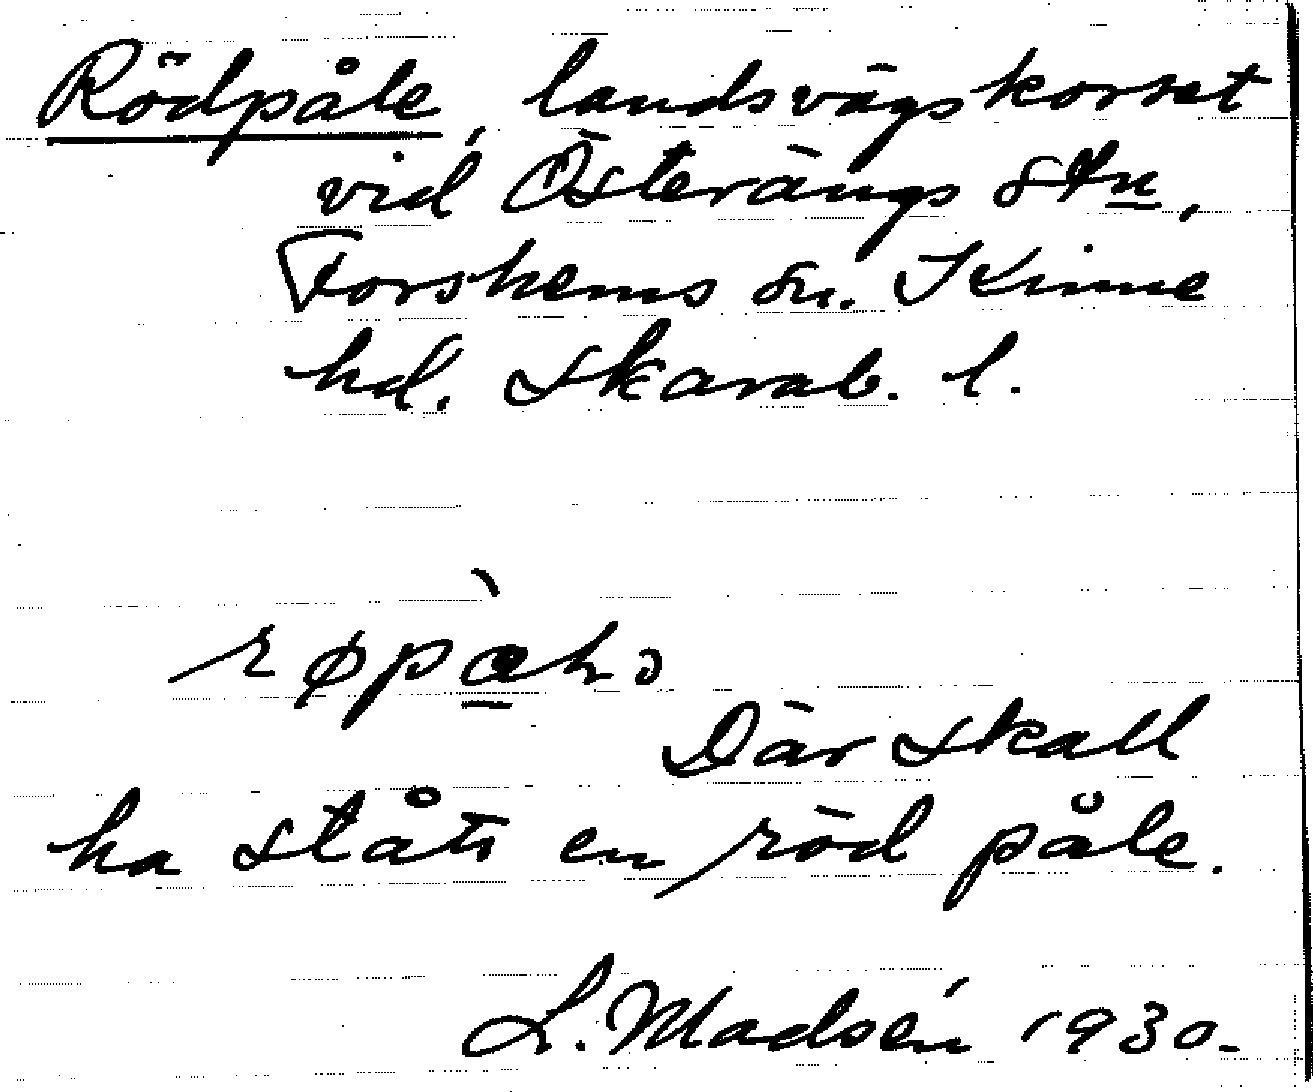 Rödpåle, landsvägskorset
vid Österängs stn,
Forshems sn. i Kinne
hd. Skarab. l.
Där skall
ha ståts en röd påle.
L. Madsén 1930.